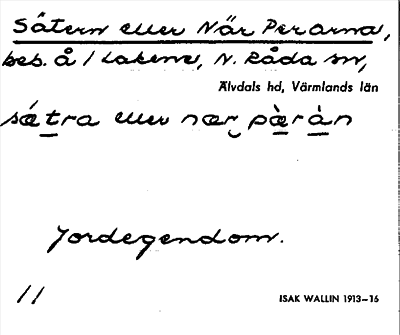 Sätern eller När Perarna,
beb. å / Lakene, N. Råda sn,
Älvdals hd, Värmlands län
sǽtra eller nær pæ̀ràn
Jordegendom.
11
ISAK WALLIN 1913–16